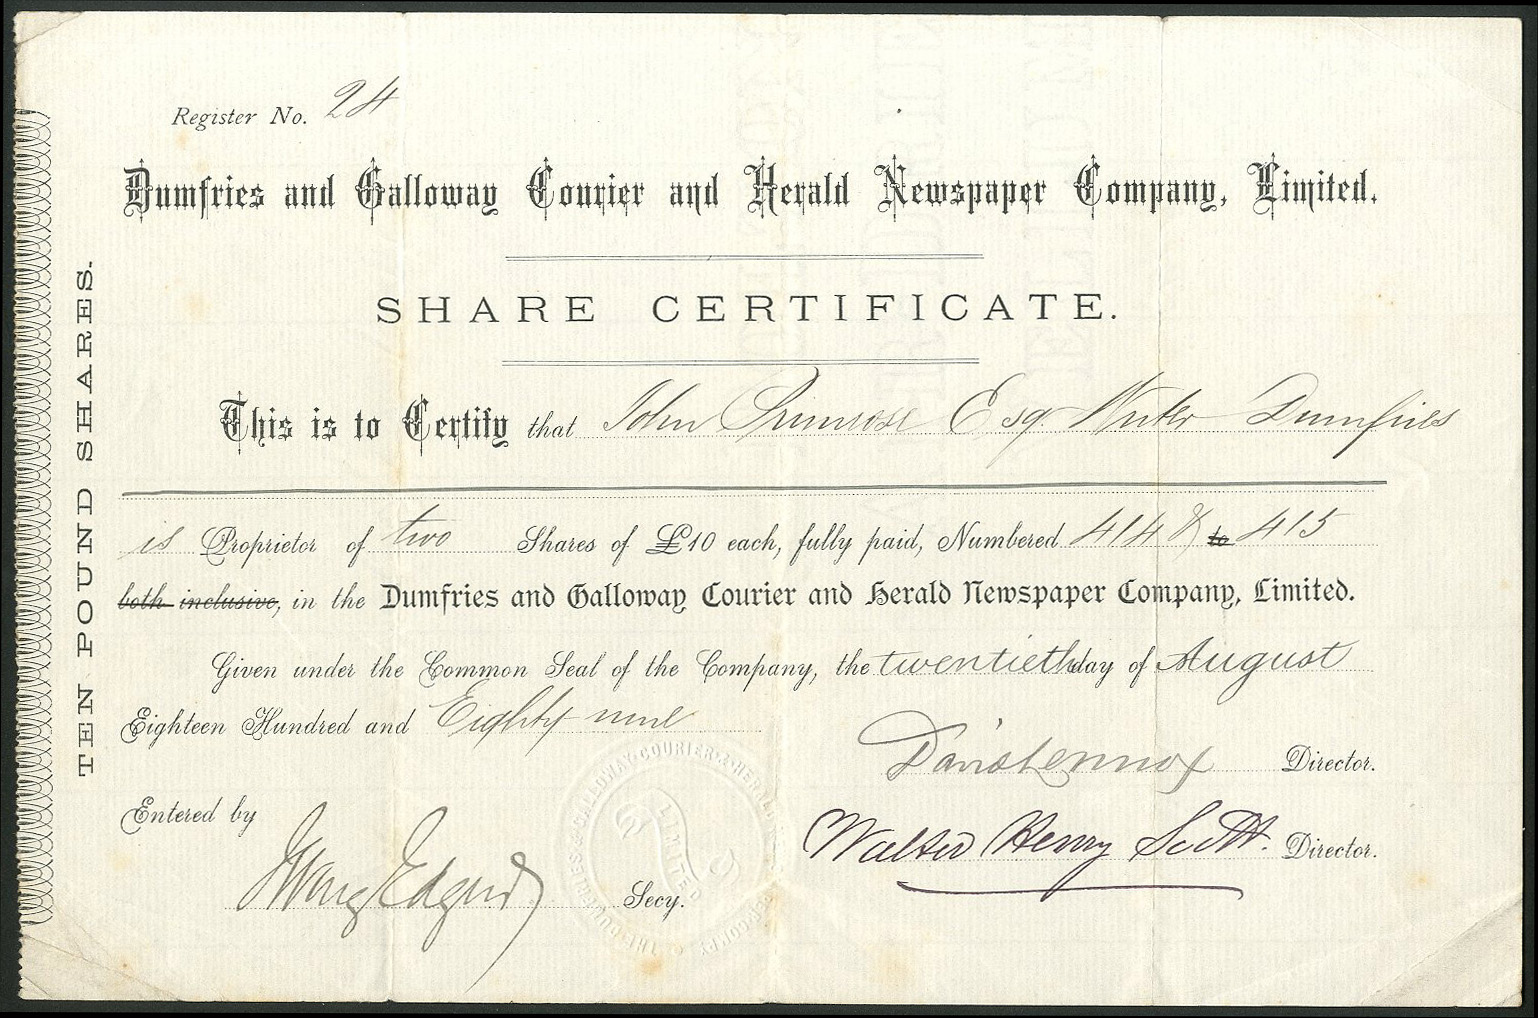 Register No. 24
Dumfries and Galloway Courier and Herald Newspaper Company, Limited.
SHARE CERTIFICATE.
This is to Certify that John Primrose Esq. Writer Dumfries
is Proprietor of two Shares of £10 each, fully paid, Numbered 414 & to 415
both inclusive, in the Dumfries and Galloway Courier and Herald Newspaper Company, Limited.
Given under the Common Seal of the Company, the twentieth day of August
Eighteen Hundred and Eighty nine
Lennox Director.
Entered by
Walter Henry Scott. Director.
Secy.
TEN POUND SHARES.
THE DUMFRIES & GALLOWAY COURIER & HERALD
LIMITED